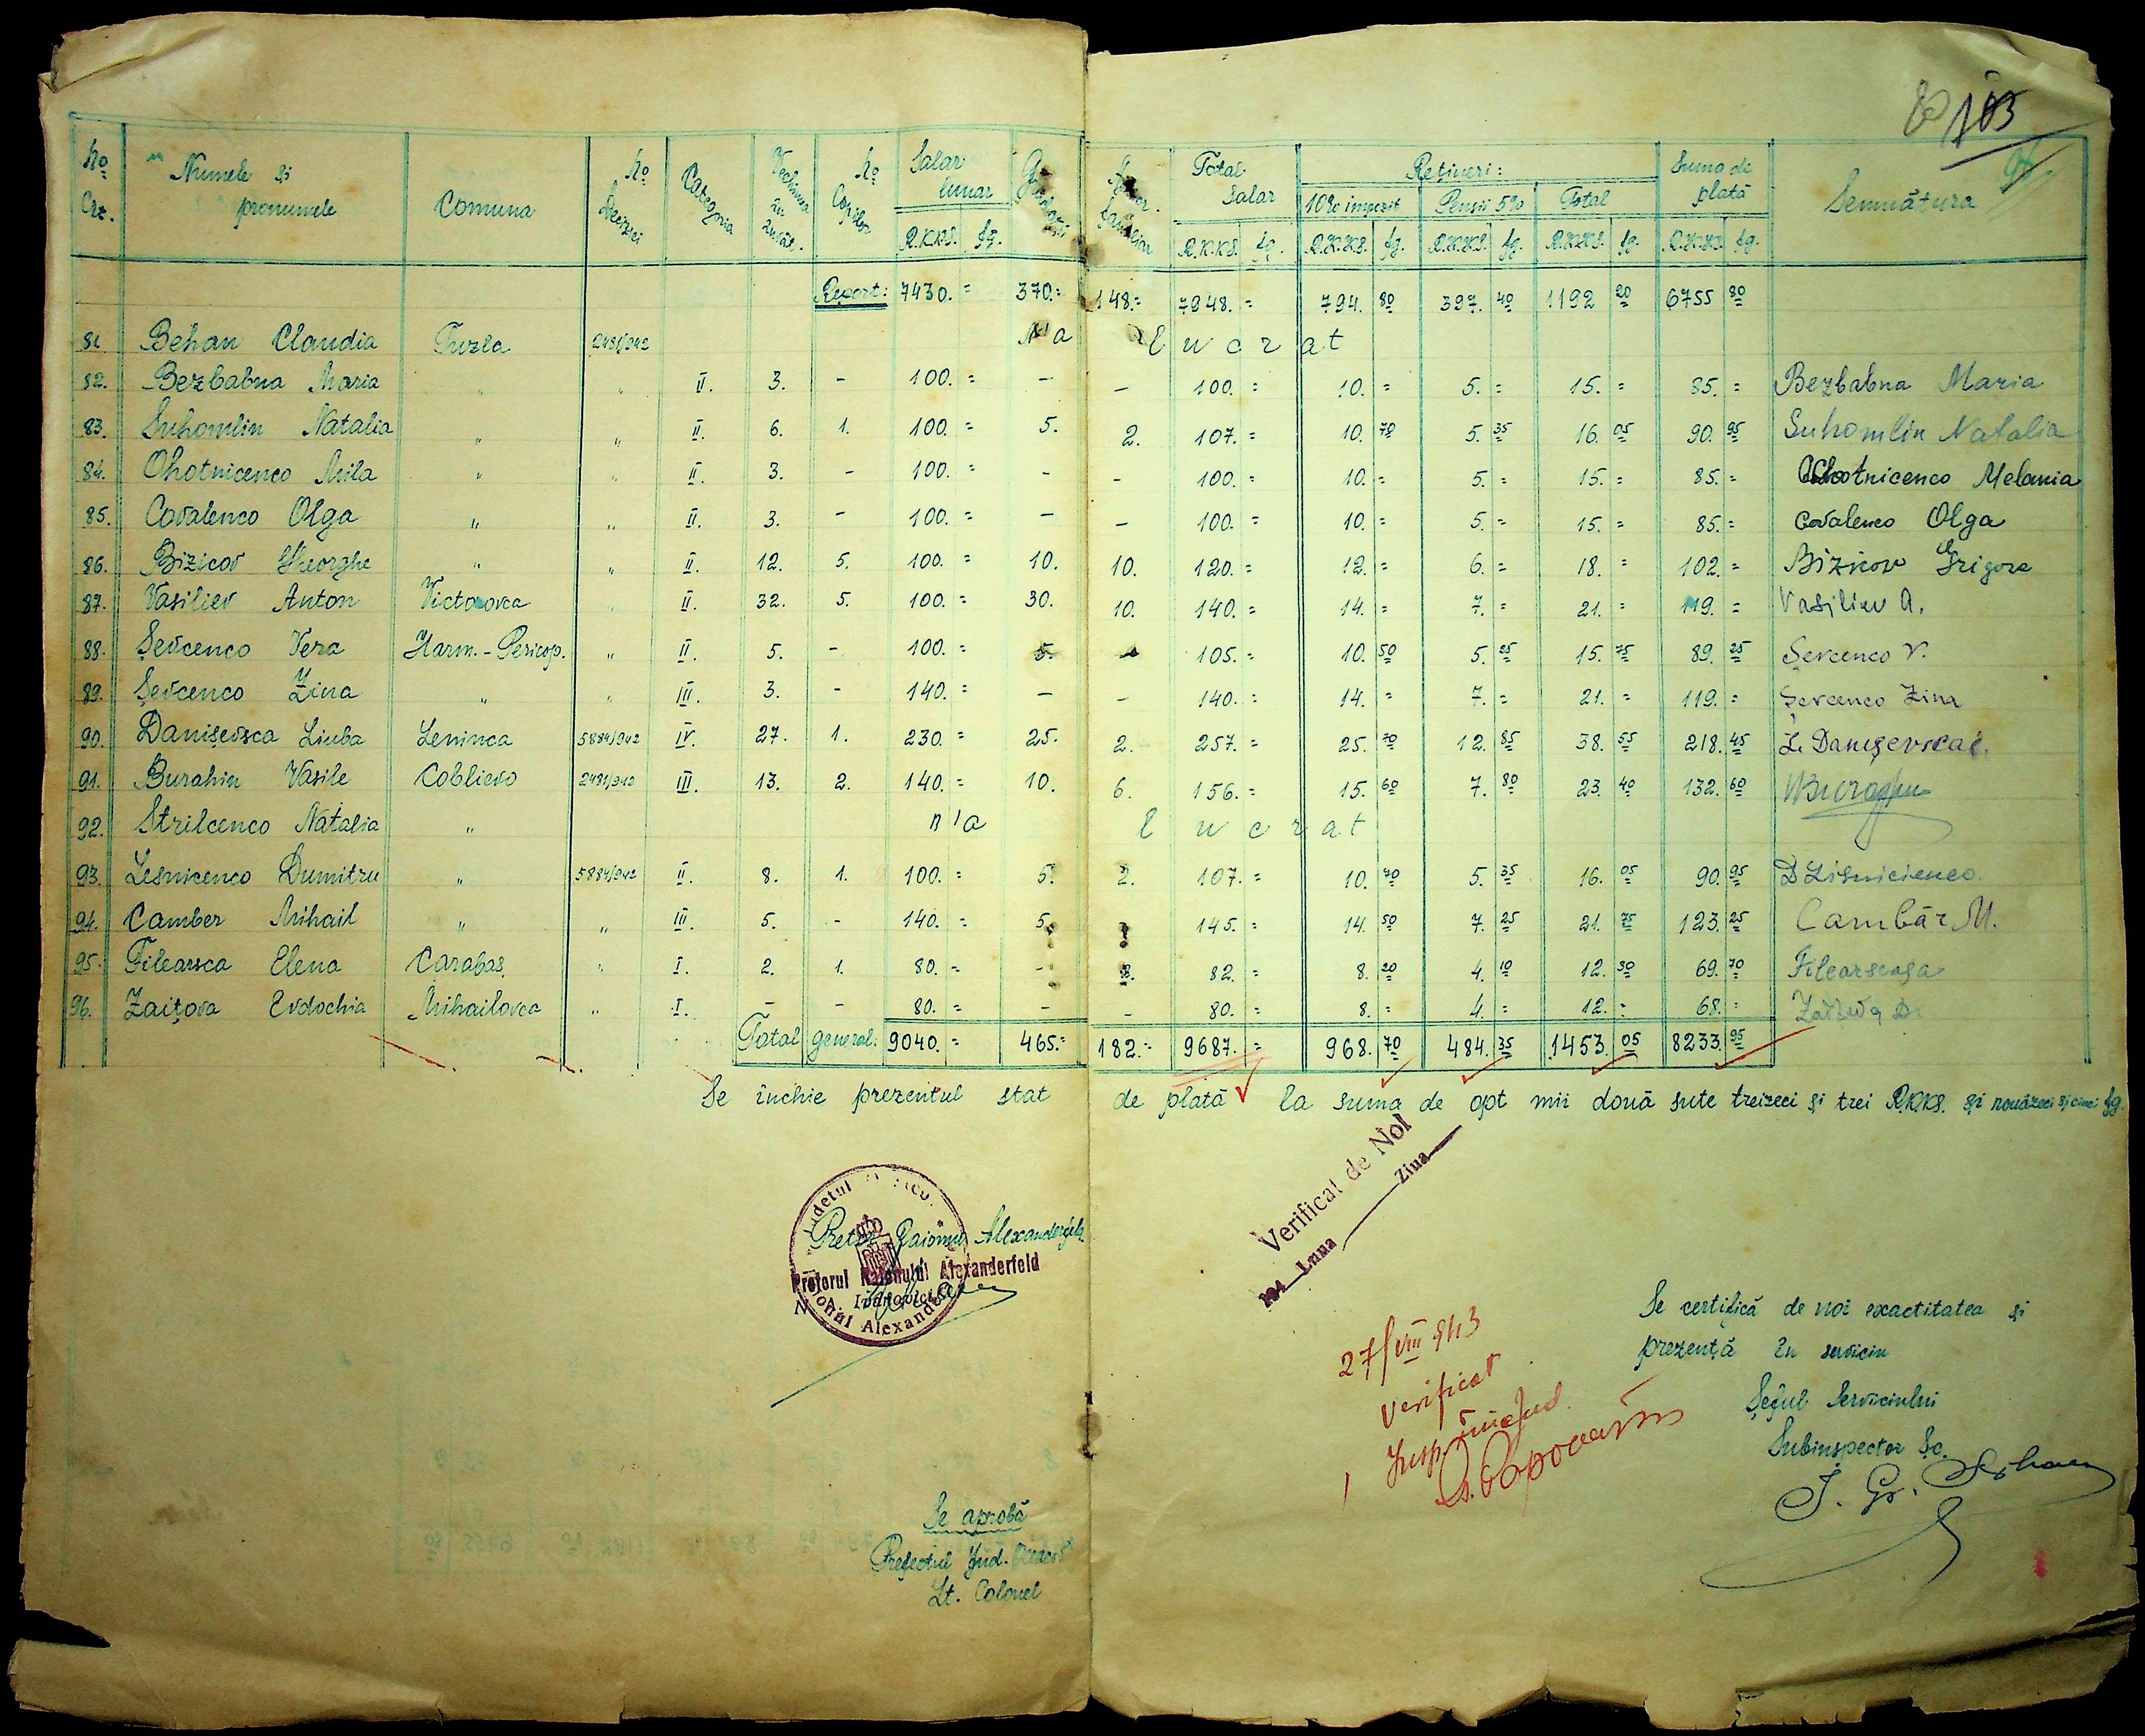 80 103
No Crt. Numele și pronumele Comuna No Deciziei Categoria Vechimea în învăț. No Copiilor Salar lunar R.K.K.S. fg. Gradații Ajutor familiar Total Salar R.K.K.S. fg. Rețineri: 10% impozit R.K.K.S. fg. Pensii 5% R.K.K.S. fg. Total R.K.K.S. fg. Suma de plată R.K.K.S. fg. Semnătura
Report: 7430.= 370.= 148.= 7948.= 794. 80 397. 40 1192 20 6755 80
81. Behan Claudia Tuzla 2481/942 N'a lucrat
82. Bezbabna Maria " " II. 3. - 100.= - - 100.= 10.= 5.= 15.= 85.= Bezbabna Maria
83. Suhomlin Natalia " " II. 6. 1. 100.= 5. 2. 107.= 10. 70 5. 35 16. 05 90. 95 Suhomlin Natalia
84. Ohotnicenco Mila " " II. 3. - 100.= - - 100.= 10.= 5.= 15.= 85.= Ohotnicenco Melania
85. Covalenco Olga " " II. 3. - 100.= - - 100.= 10.= 5.= 15.= 85.= Covalenco Olga
86. Bizicov Gheorghe " " II. 12. 5. 100.= 10. 10. 120.= 12.= 6.= 18.= 102.= Bizicov Grigore
87. Vasiliev Anton Victorovca " II. 32. 5. 100.= 30. 10. 140.= 14.= 7.= 21.= 119.= Vasiliev A.
88. Șevcenco Vera Harm.-Pericop. " II. 5. - 100.= 5. - 105.= 10. 50 5. 25 15. 75 89. 25 Șevcenco V.
89. Șevcenco Zina " " III. 3. - 140.= - - 140.= 14.= 7.= 21.= 119.= Șevcenco Zina
90. Danișevsca Liuba Leninca 5884/942 IV. 27. 1. 230.= 25. 2. 257.= 25. 70 12. 85 38. 55 218. 45 L. Danișevscai.
91. Burahin Vasile Coblievo 2481/942 III. 13. 2. 140.= 10. 6. 156.= 15. 60 7. 80 23. 40 132. 60
92. Strilcenco Natalia " n'a lucrat
93. Lesnicenco Dumitru " 5884/942 II. 8. 1. 100.= 5. 2. 107.= 10. 70 5. 35 16. 05 90. 95 D Lisnicienco.
94. Camber Mihail " " III. 5. - 140.= 5. 145.= 14. 50 7. 25 21. 75 123. 25 Cambăr M.
95. Filearsca Elena Carabaș " I. 2. 1. 80.= - 2. 82.= 8. 20 4. 10 12. 30 69. 70 Filearscaga
96. Zaițova Evdochia Mihailovca " I. - - 80.= - - 80.= 8.= 4.= 12.= 68.=
Total general. 9040.= 465.= 182.= 9687.= 968. 70 484. 35 1453. 05 8233. 95
Se închie prezentul stat de plată la suma de opt mii două sute treizeci și trei R.K.K.S. și nouăzeci și cinci fg.
Verificat de Noi
194 Luna Ziua
Pretor Raionul Alexanderfeld
Pretorul Raionului Alexanderfeld
27/VIII 943
Verificat
Se certifică de noi exactitatea și
prezență în serviciu
Șeful Serviciului
Subinspector Șc.
Se aprobă
Prefectul Jud.
Lt. Colonel